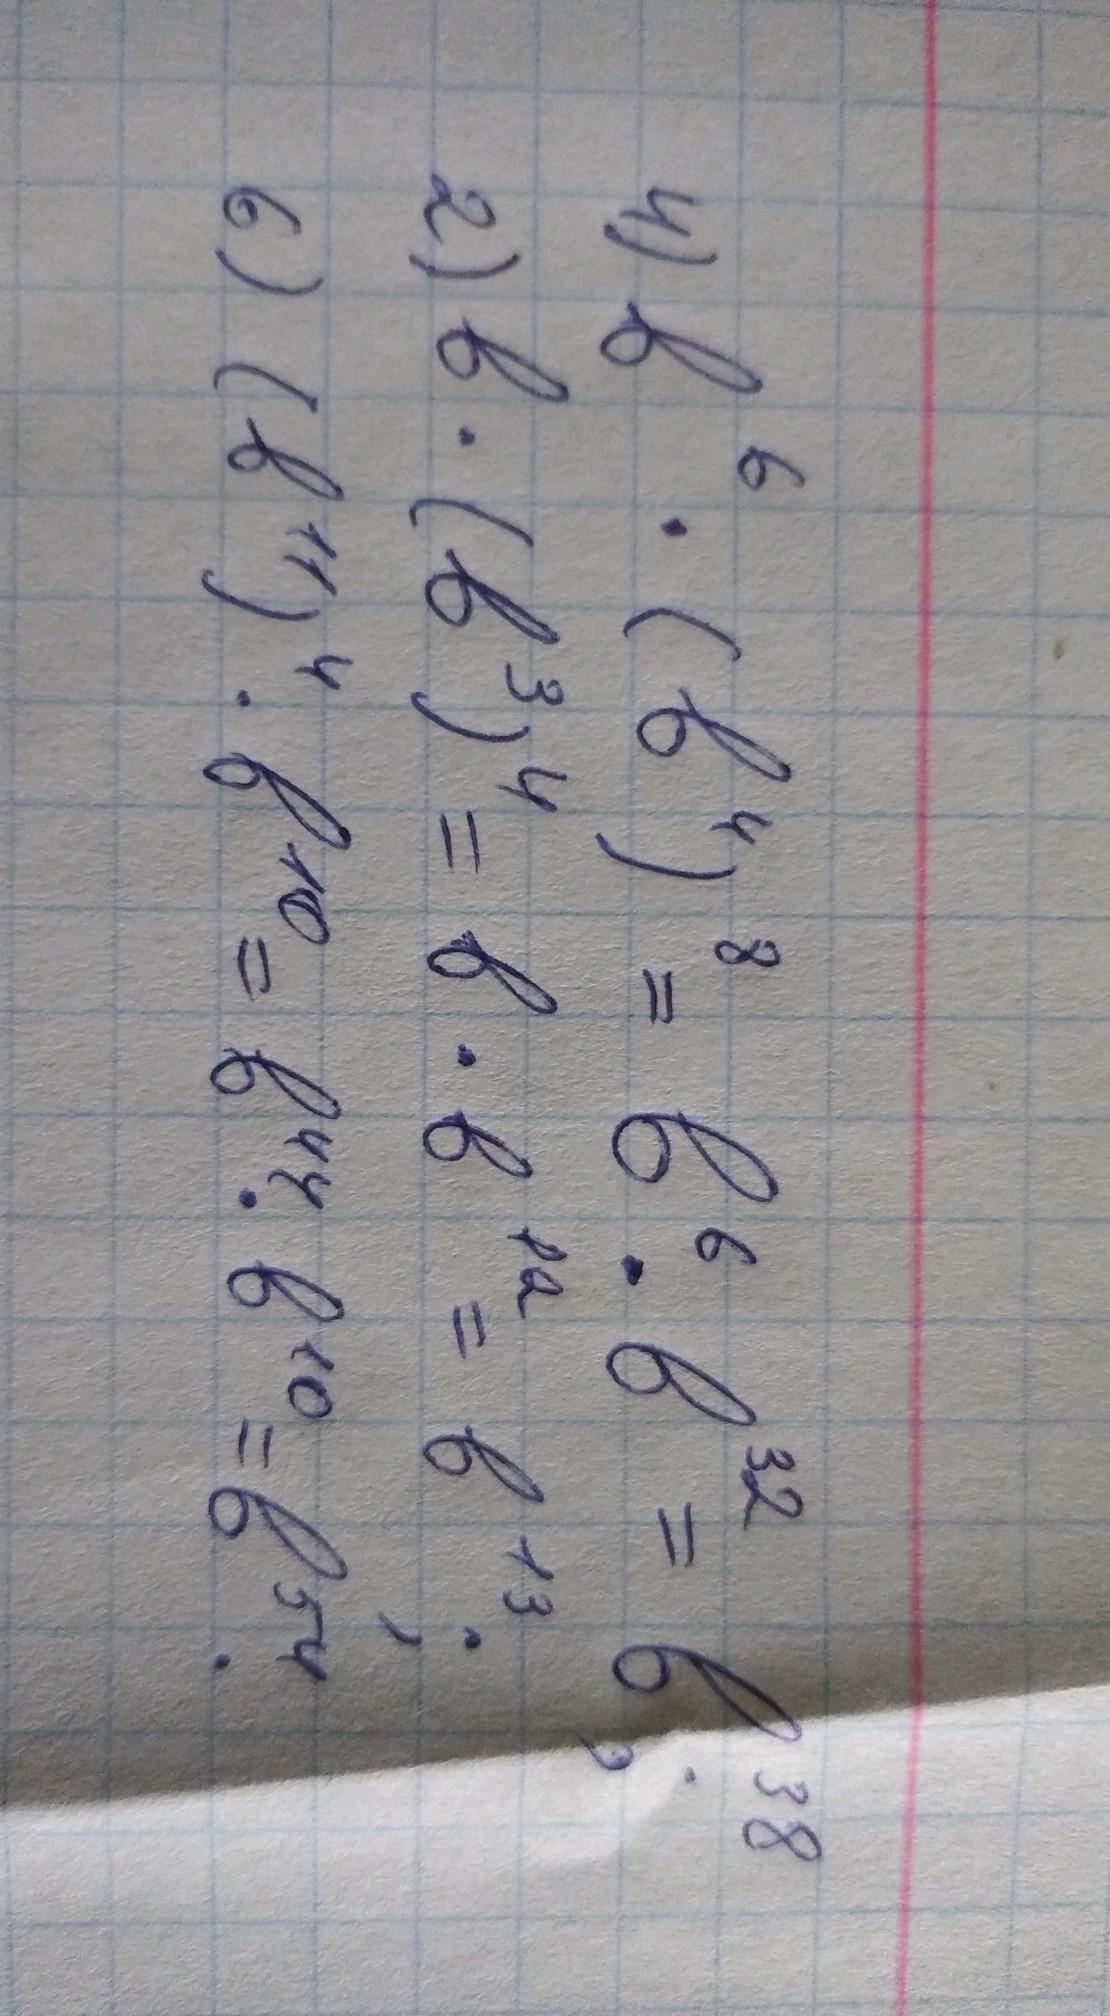 4) b⁶ · (b⁴)⁸ = b⁶ · b³² = b³⁸;
2) b · (b³)⁴ = b · b¹² = b¹³;
6) (b¹¹)⁴ · b¹⁰ = b⁴⁴ · b¹⁰ = b⁵⁴.